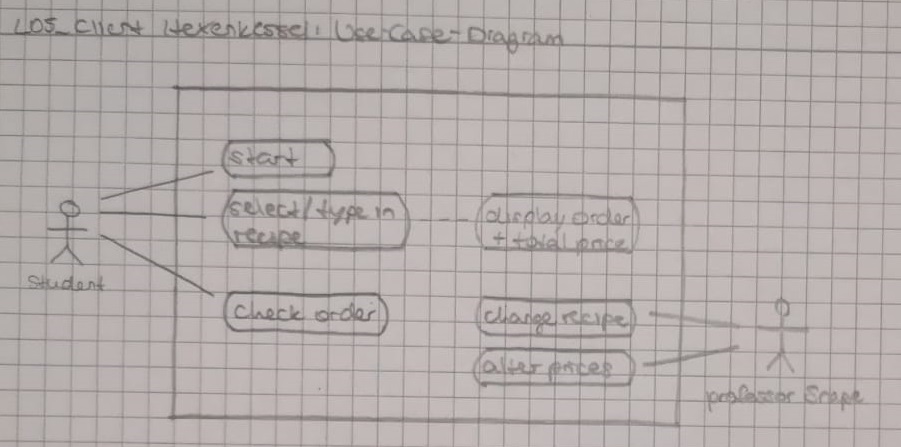 LO5_Client Hexenkessel: Use-Case-Diagram
start
select/type in
recipe
display order
+ total price
Student
check order
change recipe
alter prices
professor Snape